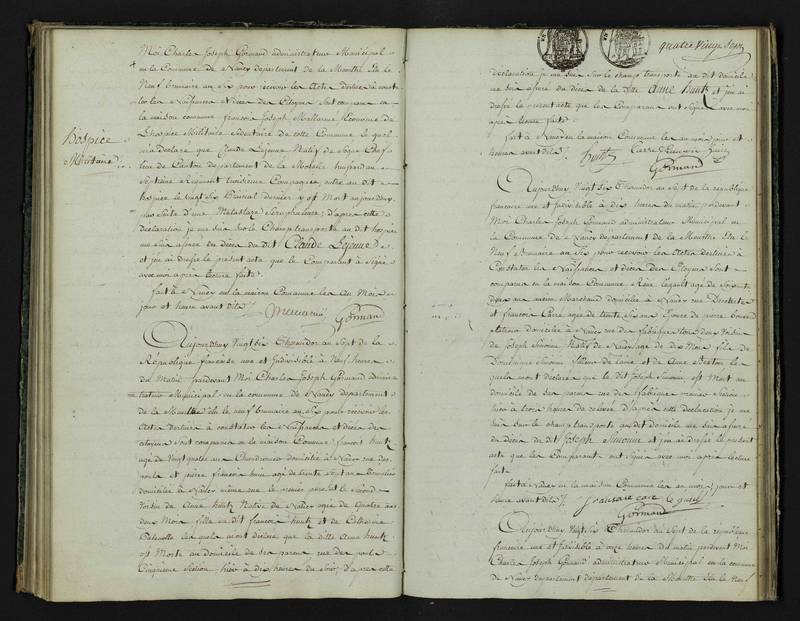 Moi Charles Joseph Gormand administrateur Municipal
de la Commune de Nancy département de la Meurthe élu le
Neuf brumaire an Six pour recevoir les Actes destinés à consta
ter les Naissances et décès des Citoyens Sont comparus en
la maison commune françois Joseph économe de
L'hospice Militaire Sédentaire de cette Commune le quel
m'a déclaré que Claude Lejeune Natif de Chef
lieu de Canton département de la Moselle au
Septième Régiment troisième Compagnie, entré au dit
hospice le vingt Six dernier y est Mort aujourd'huy
des suites d'une d'après cette
déclaration je me suis sur le Champ transporté au dit hospice
me suis assuré du décès du dit Claude Lejeune
et j'en ai dressé le présent acte que le Comparant à Signé
avec moi après lecture faite
fait à Nancy en la maison Commune les an Mois
jour et heure avant dits
Gormand
Hospice
Militaire
Aujourd'huy Vingt Six Thermidor an Sept de la
République française une et Indivisible à Neuf heures
du Matin pardevant Moi Charles Joseph Gormand adminis
trateur Municipal de la commune de Nancy département
de la Meurthe élu le neuf brumaire an Six pour recevoir les
Actes destinés à constater les Naissances et décès des
citoyens Sont comparus en la maison Commune françois huntz
agé de Vingt quatre ans domicilié à Nancy rue des
ponts et pierre françois huin agé de trente Sept ans
domicilié à Nancy même rue le premier père et le Second
Voisin de Anne huntz Native de Nancy agée de Quatre ans
deux Mois fille du dit françois huntz et de Catherine
les quels m'ont déclaré que la ditte Anne huntz
est Morte au domicile de ses parens rue des ponts
Cinquième Section, hier à dix heures du Soir, d'après cette
quatre vingt Sept
déclaration je me suis sur le champ transporté au dit domicile
me suis assuré du décès de la ditte Anne huntz et j'en ai
dressé le présent acte que les Comparans ont Signé avec moi
après lecture faite
fait à Nancy en la maison Commune les an mois jour et
heure avant dits
Gormand
Aujourd'huy Vingt Six Thermidor an Sept de la république
française une et Indivisible à dix heures du matin pardevant
Moi Charles Joseph Gormand administrateur Municipal de
la Commune de Nancy département de la Meurthe élu le
Neuf Brumaire an Six pour recevoir les actes destinés à
Constater les Naissances et décès des Citoyens Sont
comparus en la maison Commune agé de
ans Marchand domicilié à Nancy rue
et françois Carré agé de trente Six ans
domicilié à Nancy rue des fabriques tous deux Voisins
de Joseph Simonne Natif de Nancy agé de dix Mois fils de
Simonne fileur de laine et de Anne les
quels m'ont déclaré que le dit Joseph Simonne est Mort au
domicile de ses parens rue des fabriques première Section
hier à trois heures de relevée d'après cette déclaration je me
suis sur le champ transporté au dit domicile me suis assuré
du décès du dit Joseph Simonne et j'en ai dressé le présent
acte que les Comparants ont signé avec moi après lecture
faite
fait à Nancy en la maison Commune les an mois jour et
heure avant dits
Gormand
Aujourd'huy Vingt Six Thermidor an Sept de la république
française une et Indivisible à onze heures du matin pardevant Moi
Charles Joseph Gormand administrateur Municipal de la commune
de Nancy département département de la Meurthe élu le Neuf